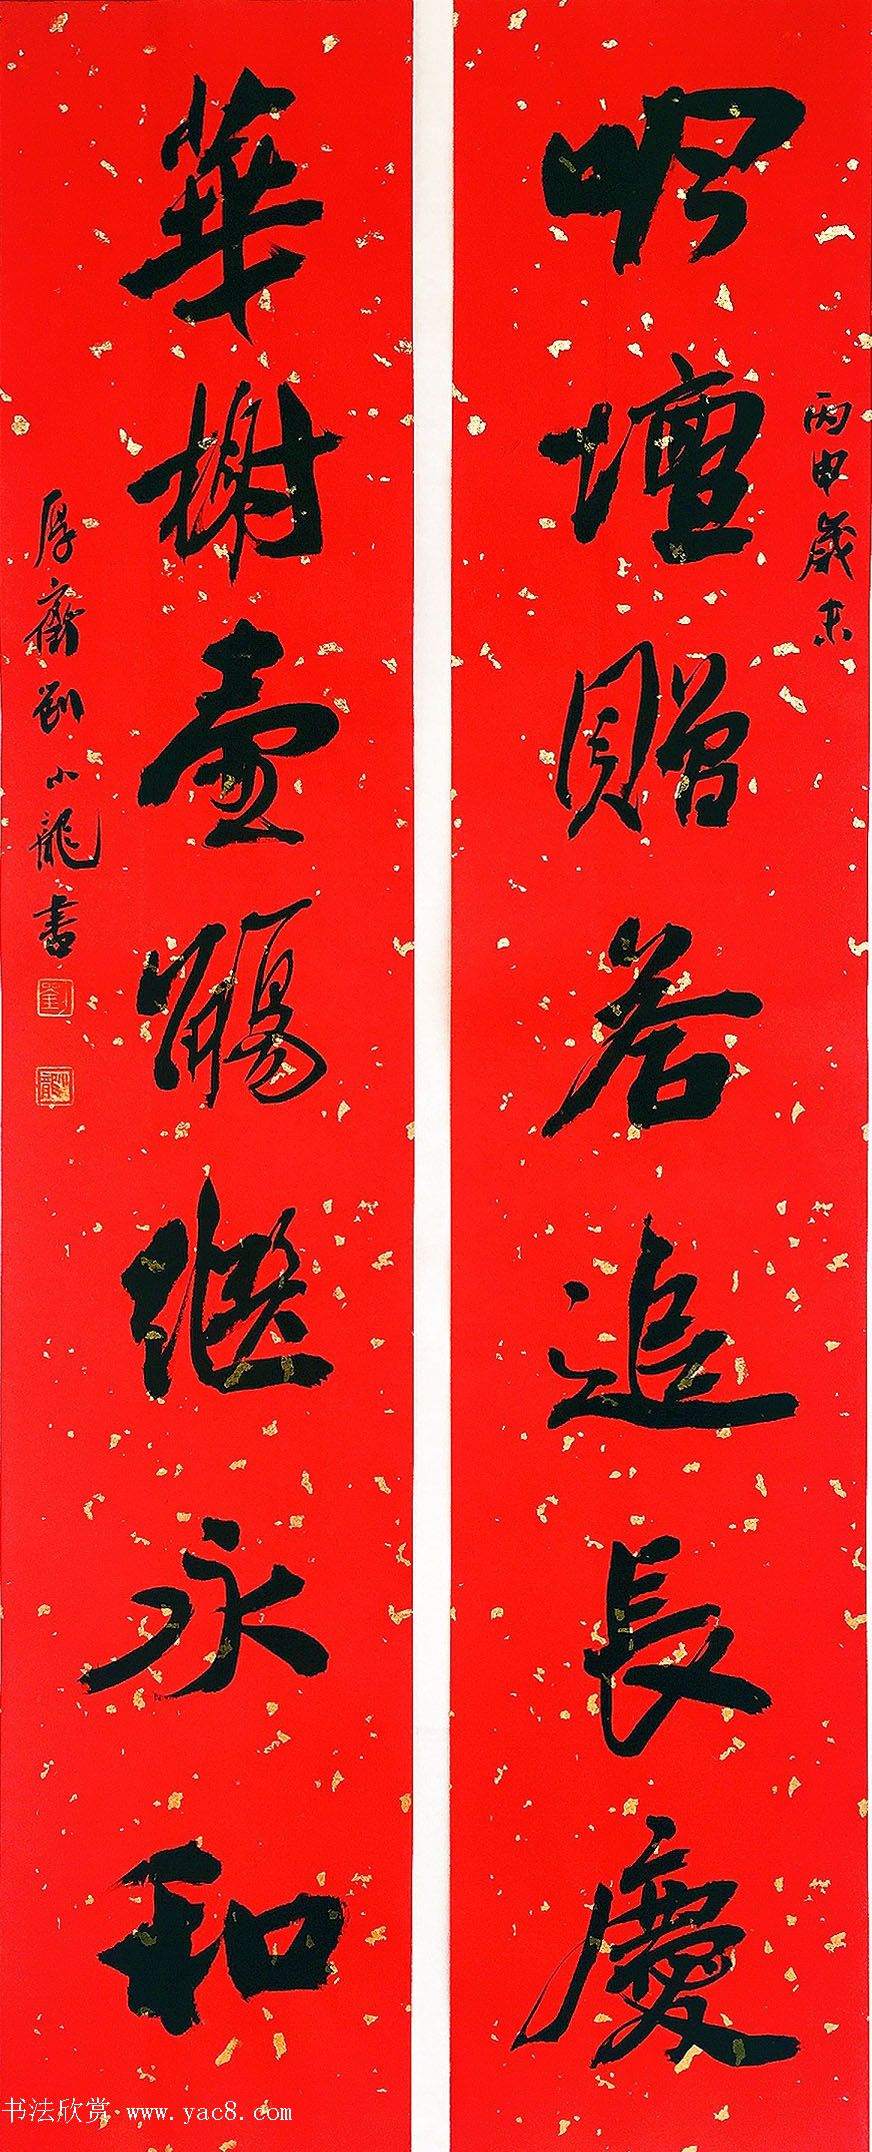 丙申歲末
吟壇贈答追長慶
華榭壺觴繼永和
厚齋劉小龍書
劉
小龍
书法欣赏 www.yac8.com